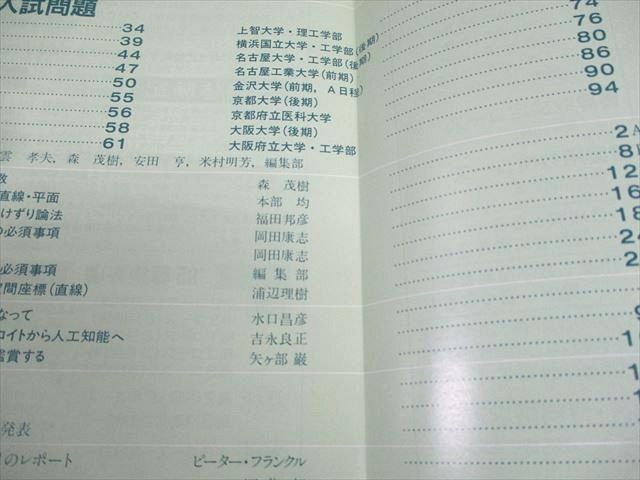 入試問題
34 上智大学・理工学部 74
39 横浜国立大学・工学部(後期) 76
44 名古屋大学・工学部(後期) 80
47 名古屋工業大学(前期) 86
50 金沢大学(前期, A日程) 90
55 京都大学(後期) 94
56 京都府立医科大学
58 大阪大学(後期)
61 大阪府立大学・工学部
雲 孝夫, 森 茂樹, 安田 亨, 米村明芳, 編集部
数 森 茂樹
直線・平面 本部 均
けずり論法 福田邦彦
の必須事項 岡田康志
岡田康志
必須事項 編集部
空間座標(直線) 浦辺理樹
なって 水口昌彦
ロイトから人工知能へ 吉永良正
鑑賞する 矢ヶ部 巌
発表
のレポート ピーター・フランクル
2
8
12
16
18